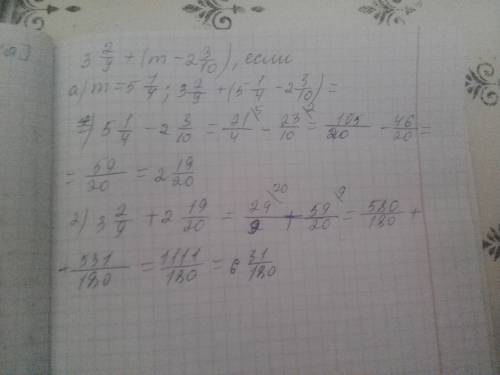 а]
3 2/9 + (m - 2 3/10), если
а) m = 5 1/4 ; 3 2/9 + (5 1/4 - 2 3/10) =
1) 5 1/4 - 2 3/10 = 21/4 \5 - 23/10 \2 = 105/20 - 46/20 =
= 59/20 = 2 19/20
2) 3 2/9 + 2 19/20 = 29/9 \20 + 59/20 \9 = 580/180 +
+ 531/180 = 1111/180 = 6 31/180